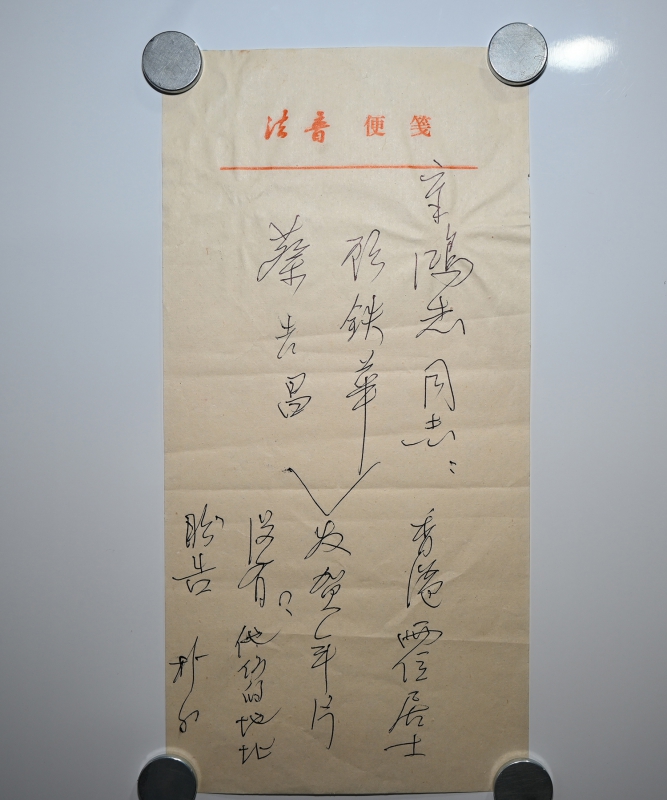 法音 便笺
鸿志同志：香港两位居士
顾鉄華
蔡吉昌
发贺年片
没有？他们的地址
盼告 朴初